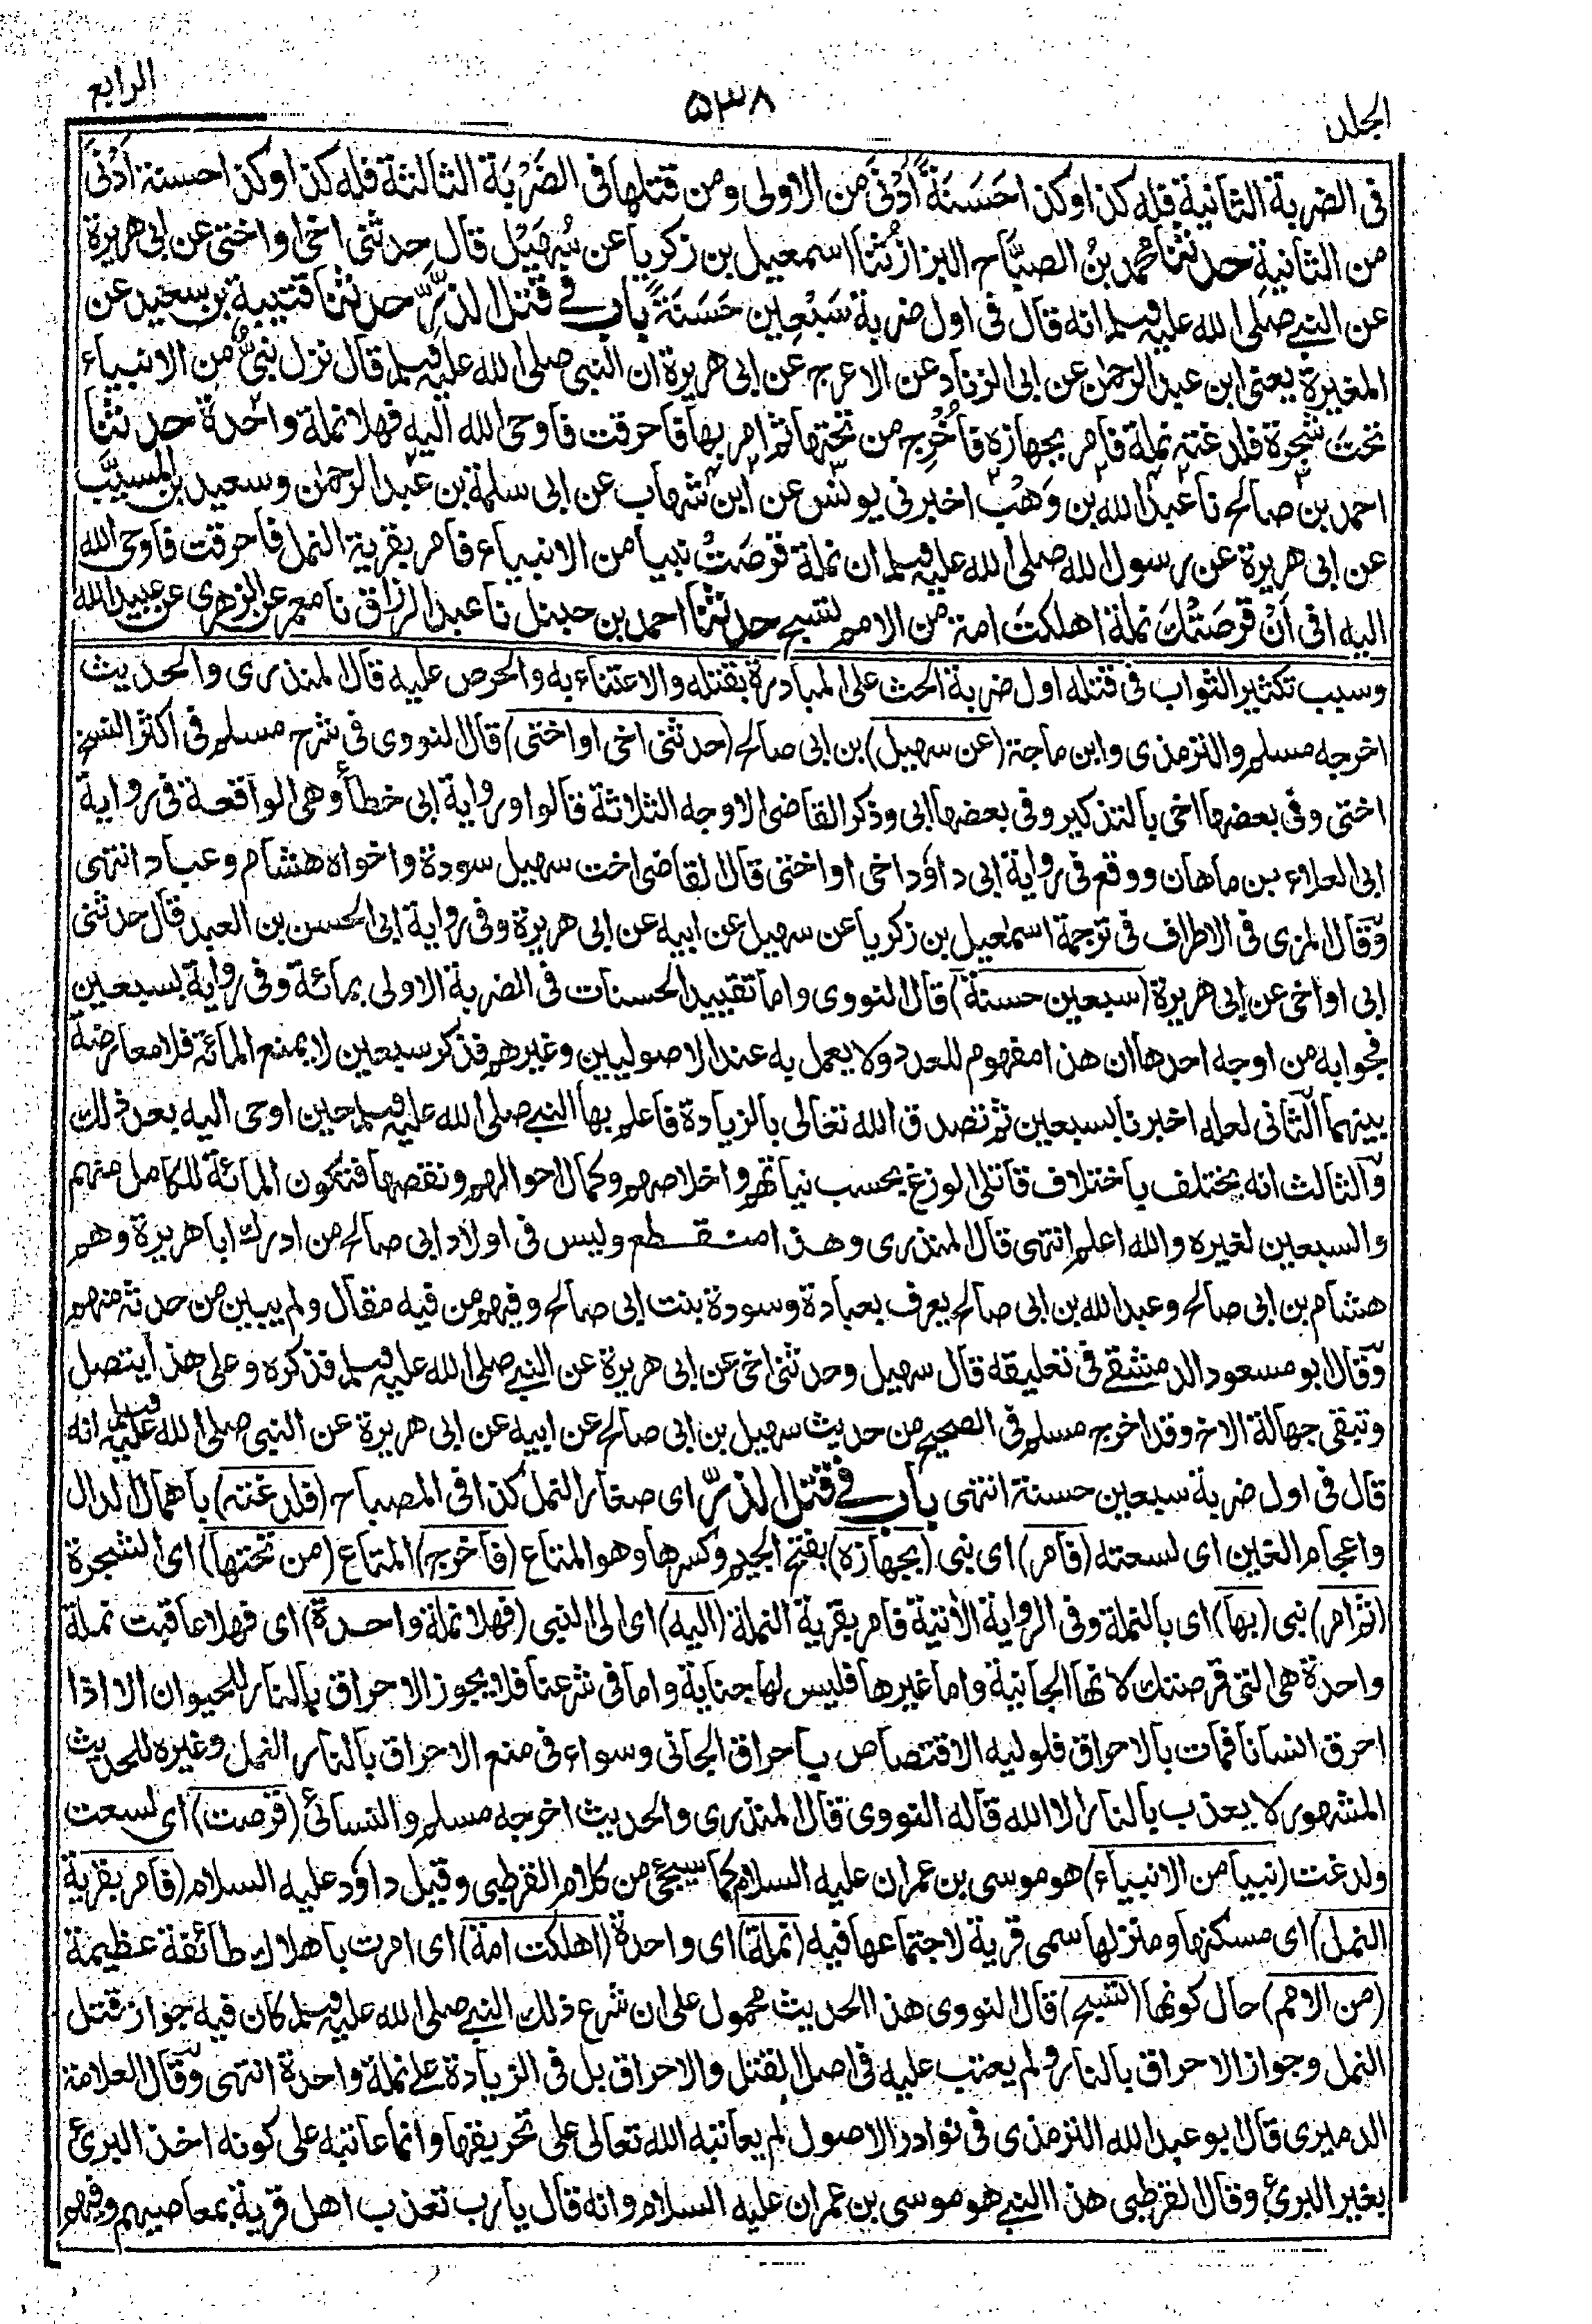 الجلد ۵۳۸ الرابع
فى الضربة الثانية فله كذا وكذا حَسَنَةً اَدْنىٰ من الاولى ومن قتلها فى الضَرْبَة الثالثة فله كذا وكذا حسنة اَدْنىٰ
من الثانية حدثنا محمد بنُ الصبَّاح البزازُ ثنا اسمعيل بن زكريا عن سُهَيْل قال حدثنى اخى او اختى عن ابى هريرة
عن النبى صلى الله عليه وسلم انه قال فى اول ضربة سَبْعِين حَسَنَةً باب فى قتل الذَّرِّ حدثنا قتيبة بن سعيد عن
المغيرة يعنى ابن عبد الرحمٰن عن ابى الزناد عن الاعرج عن ابى هريرة ان النبى صلى الله عليه وسلم قال نزل نبىٌّ من الانبياء
تحتَ شجرة فلدغته نملة فامر بجهازه فاُخْرِج من تحتها ثم امر بها فاحرقت فاوحى الله اليه فهلا نملة واحدة حدثنا
احمد بن صالح نا عبدُ الله بن وَهْب اخبرنى يونس عن ابن شهاب عن ابى سلمة بن عبد الرحمٰن وسعيد بن المسيَّب
عن ابى هريرة عن رسول الله صلى الله عليه وسلم ان نملة قرصَتْ نبيا من الانبياء فامر بقرية النمل فاحرقت فاوحى الله
اليه افى اَنْ قرصَتْكَ نملة اهلكتَ امة من الامم تسبح حدثنا احمد بن حنبل نا عبد الرزاق نا معمر عن الزهرى عن عبيد الله
وسبب تكثير الثواب فى قتله اول ضربة الحث على المبادرة بقتله والاعتناء به والحرص عليه قال المنذرى والحديث
اخرجه مسلم والترمذى وابن ماجة (عن سهيل) بن ابى صالح (حدثنى اخى او اختى) قال النووى فى شرح مسلم فى اكثر النسخ
اختى وفى بعضها اخى بالتذكير وفى بعضها ابى وذكر القاضى الاوجه الثلاثة قالوا ورواية ابى خطأ وهى الواقعة فى رواية
ابى العلاء بن ماهان ووقع فى رواية ابى داؤد اخى او اختى قال القاضى اخت سهيل سودة واخواه هشام وعباد انتهى
وقال المزى فى الاطراف فى ترجمة اسمعيل بن زكريا عن سهيل عن ابيه عن ابى هريرة وفى رواية ابى الحسن بن العبد قال حدثنى
ابى او اخى عن ابى هريرة (سبعين حسنة) قال النووى واما تقييد الحسنات فى الضربة الاولى بمائة وفى رواية لسبعين
فجوابه من اوجه احدها ان هذا مفهوم للعدد ولا يعمل به عند الاصوليين وغيرهم فذكر سبعين لا يمنع المائة فلا معارضة
بينهما الثانى لعله اخبرنا بسبعين ثم تصدق الله تعالى بالزيادة فاعلم بها النبى صلى الله عليه وسلم حين اوحى اليه بعد ذلك
والثالث انه يختلف باختلاف قاتلى الوزغ بحسب نياتهم واخلاصهم وكمال احوالهم ونقصها فتكون المائة للكامل منهم
والسبعين لغيره والله اعلم انتهى قال المنذرى وهذا منقطع وليس فى اولاد ابى صالح من ادرك ابا هريرة وهم
هشام بن ابى صالح وعبد الله بن ابى صالح يعرف بعبادة وسودة بنت ابى صالح وفيهم من فيه مقال ولم يبين من حدثه منهم
وقال ابو مسعود الدمشقى فى تعليقه قال سهيل وحدثنى اخى عن ابى هريرة عن النبى صلى الله عليه وسلم فذكره وعلى هذا يتصل
وتبقى جهالة الاخ وقد اخرج مسلم فى الصحيح من حديث سهيل بن ابى صالح عن ابيه عن ابى هريرة عن النبى صلى الله عليه وسلم انه
قال فى اول ضربة سبعين حسنة انتهى باب فى قتل الذرّ اى صغار النمل كذا فى المصباح (فلدغته) باهمال الدال
واعجام الغين اى لسعته (فامر) اى نبى (بجهازه) بفتح الجيم وكسرها وهو المتاع (فاخرج) المتاع (من تحتها) اى الشجرة
(ثم امر) نبى (بها) اى بالنملة وفى الرواية الآتية فامر بقرية النملة (اليه) اى الى النبى (فهلا نملة واحدة) اى فهلا عاقبت نملة
واحدة هى التى قرصتك لانها الجانية واما غيرها فليس لها جناية واما فى شرعنا فلا يجوز الاحراق بالنار للحيوان الا اذا
احرق انسانا فمات بالاحراق فلوليه الاقتصاص باحراق الجانى وسواء فى منع الاحراق بالنار النمل وغيره للحديث
المشهور لا يعذب بالنار الا الله قاله النووى قال المنذرى والحديث اخرجه مسلم والنسائى (قرصت) اى لسعت
ولدغت (نبيا من الانبياء) هو موسى بن عمران عليه السلام كما سيجئ من كلام القرطبى وقيل داؤد عليه السلام (فامر بقرية
النمل) اى مسكنها ومنزلها سمى قرية لاجتماعها فيه (نملة) اى واحدة (اهلكت امة) اى امرت باهلاك طائفة عظيمة
(من الامم) حال كونها (تسبح) قال النووى هذا الحديث محمول على ان شرع ذلك النبى صلى الله عليه وسلم كان فيه جواز قتل
النمل وجواز الاحراق بالنار ولم يعتب عليه فى اصل القتل والاحراق بل فى الزيادة على نملة واحدة انتهى وقال العلامة
الدميرى قال ابو عبد الله الترمذى فى نوادر الاصول لم يعاتبه الله تعالى على تحريقها وانما عاتبه على كونه اخذ البرئ
بغير البرئ وقال القرطبى هذا النبى هو موسى بن عمران عليه السلام وانه قال يا رب تعذب اهل قرية بمعاصيهم وفيهم